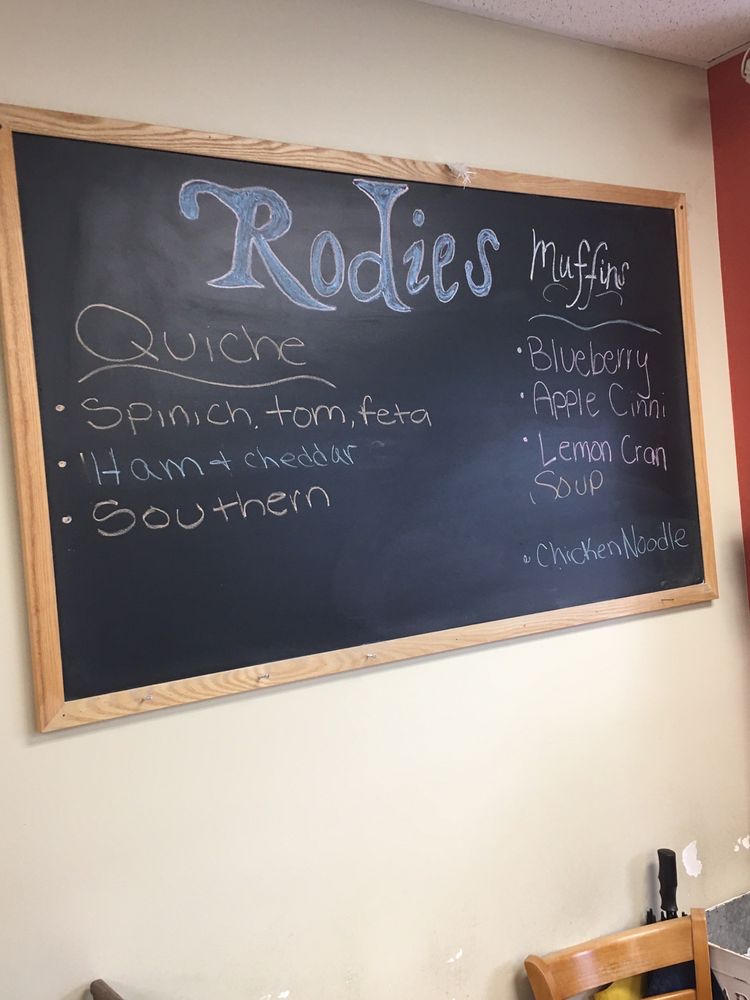 Rodies
Quiche
• Spinich, tom, feta
• Ham + cheddar
• Southern
Muffins
• Blueberry
• Apple Cinni
• Lemon Cran
Soup
• Chicken Noodle